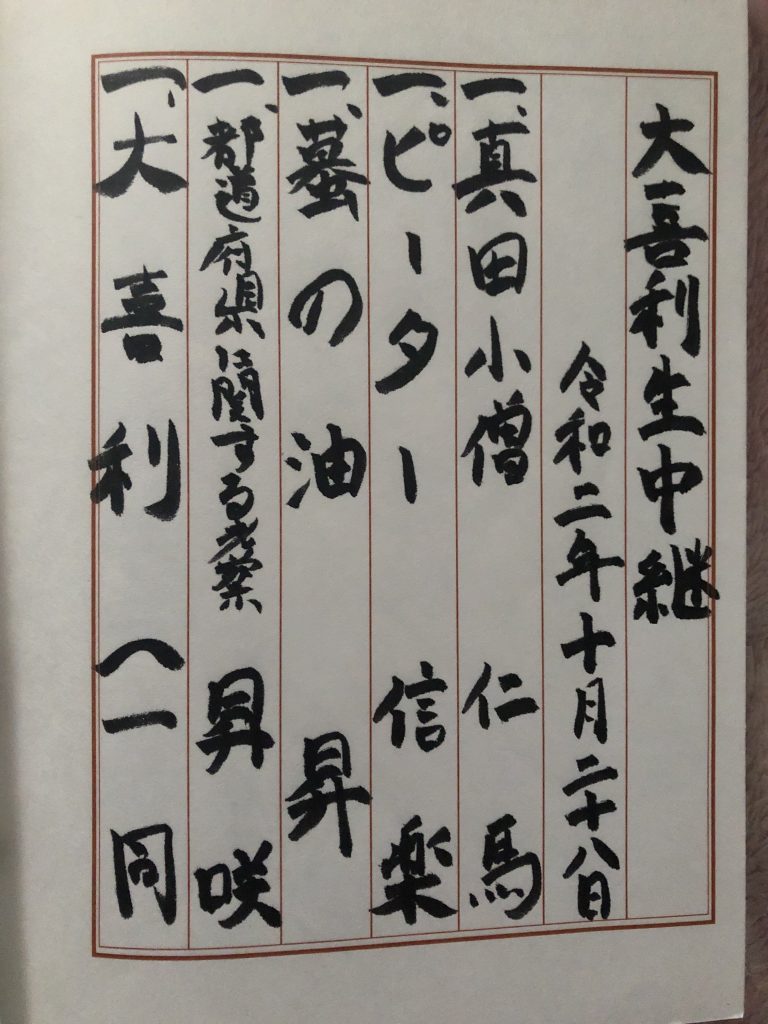 大喜利生中継
令和二年十月二十八日
一、真田小僧 仁馬
一、ピーター 信楽
一、蟇の油 昇
一、都道府県に関する考察 昇咲
一、大喜利 一同